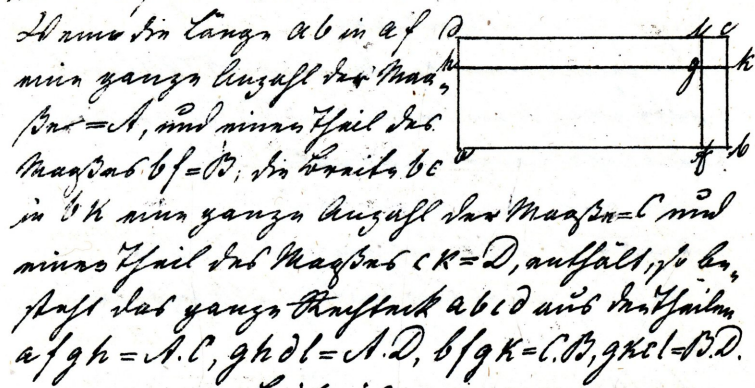 Wenn die Länge ab in af
eine ganze Anzahl der Maa-
ße = A, und einen Theil des
Maaßes bf = B; die Breite bc
in bk eine ganze Anzahl der Maaße = C und
einen Theil des Maaßes ck = D, enthält, so be-
steht das ganze Rechteck abcd aus den Theilen
afgh = A.C, ghdl = A.D, bfgk = C.B, gkcl = B.D.
d l c
h g k
a f b